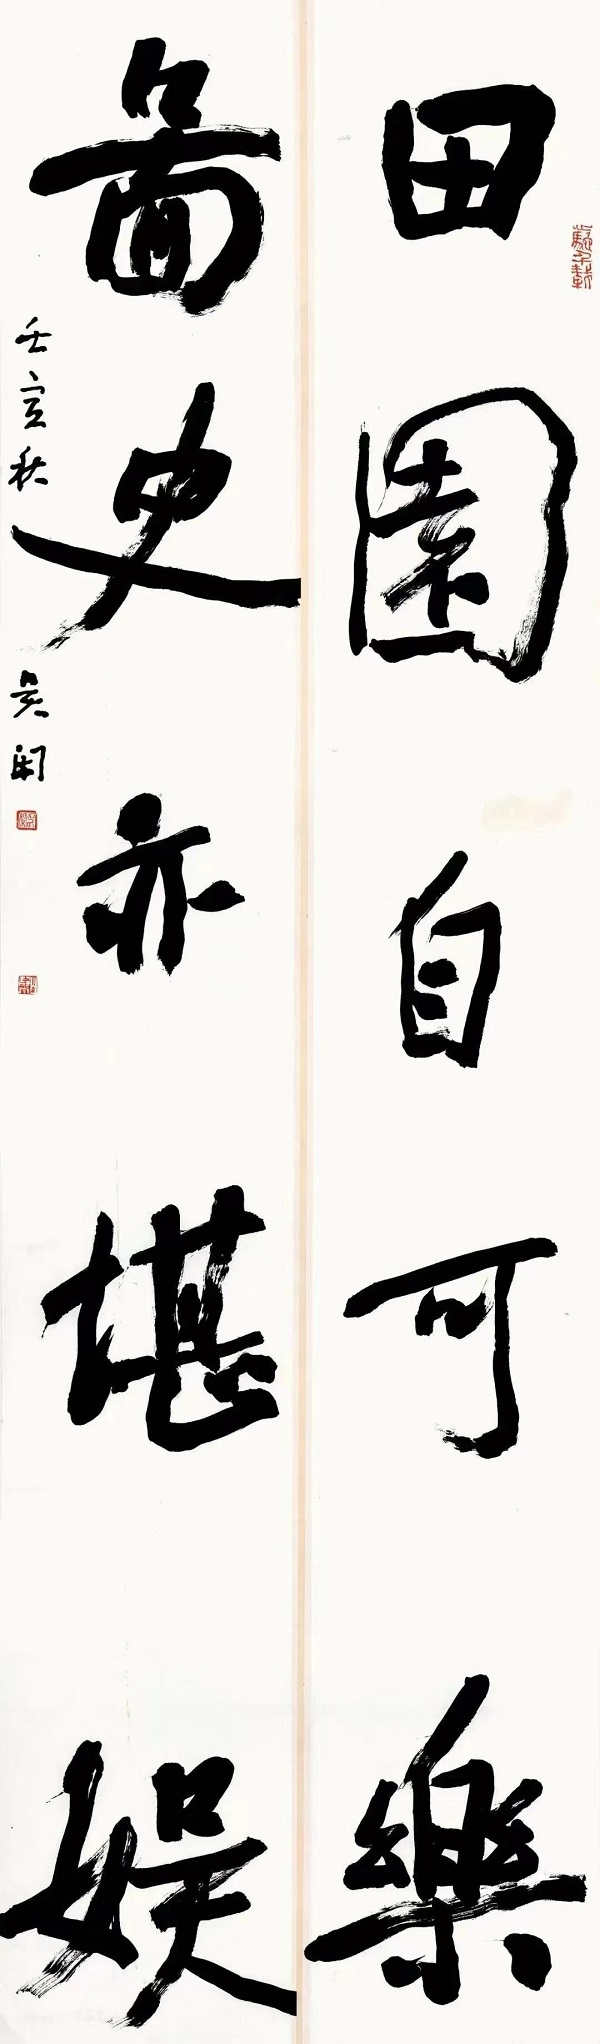 田園自可樂
圖史亦堪娛
壬寅秋
吳閑